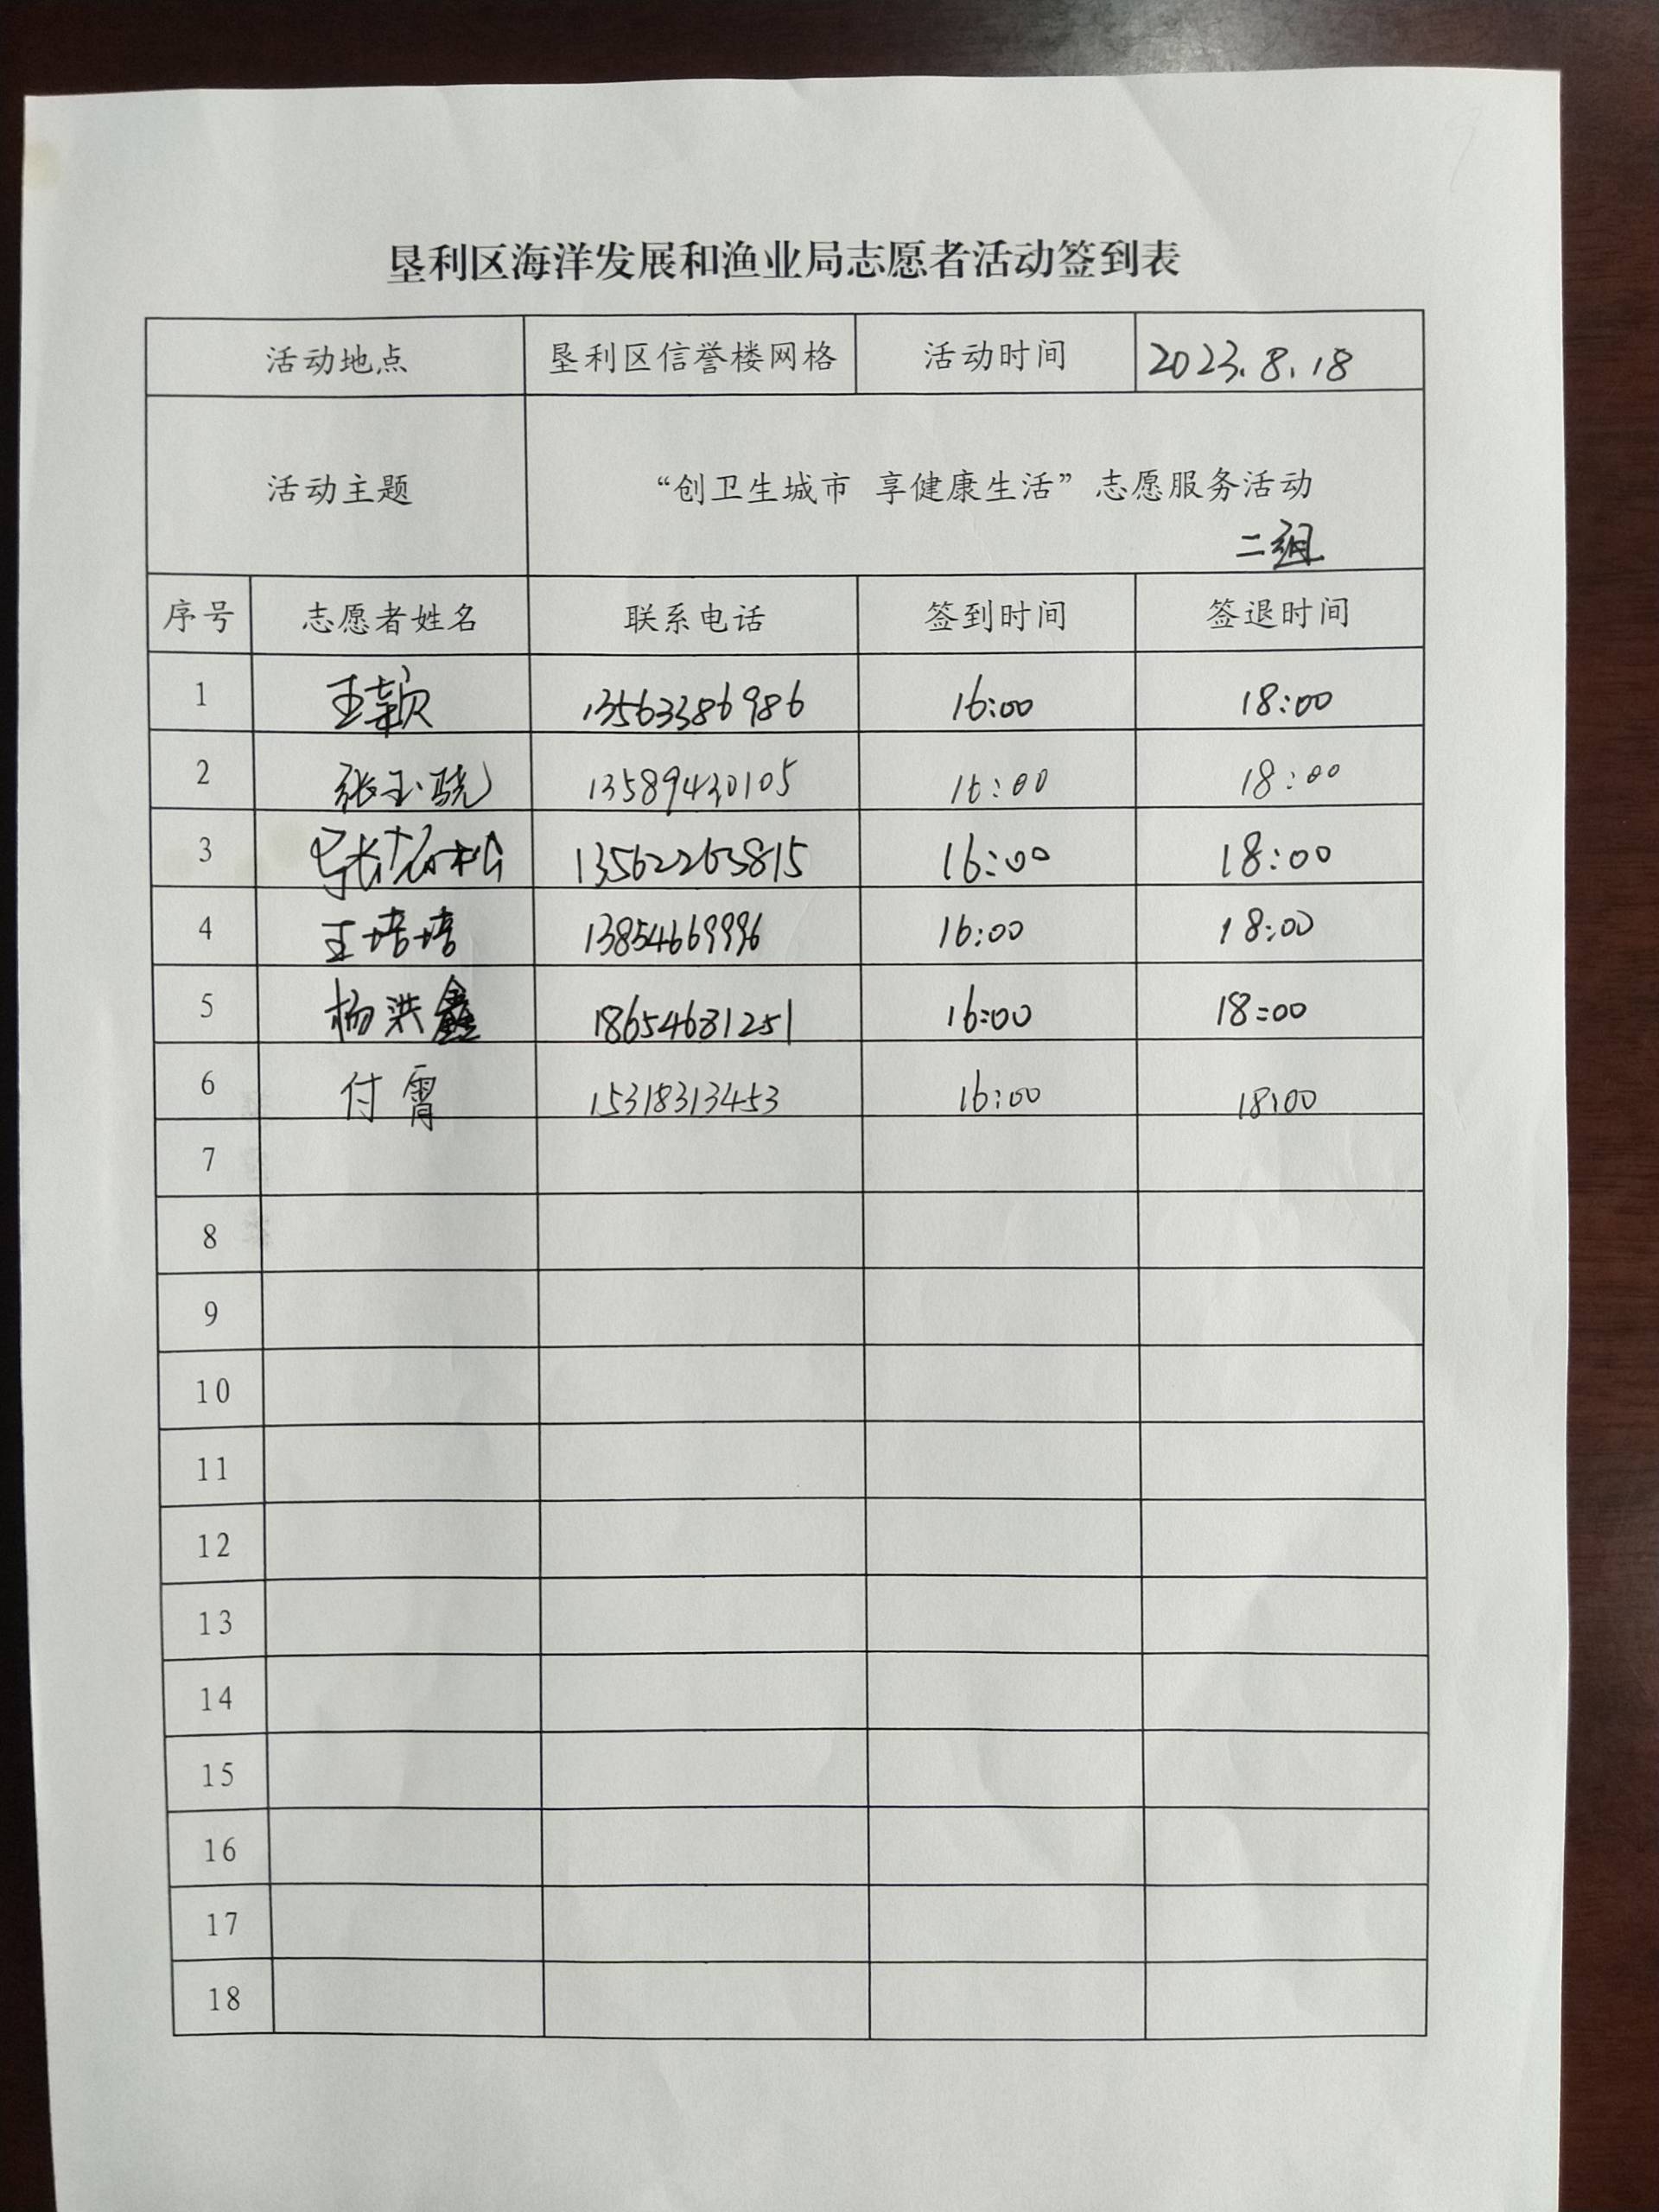 垦利区海洋发展和渔业局志愿者活动签到表
活动地点 垦利区信誉楼网格 活动时间 2023.8.18
活动主题 “创卫生城市 享健康生活”志愿服务活动
二组
序号 志愿者姓名 联系电话 签到时间 签退时间
1 王颖 13563386986 16:00 18:00
2 张玉骁 13589430105 16:00 18:00
3 13562263815 16:00 18:00
4 王培培 13854669996 16:00 18:00
5 杨洪鑫 18654631251 16:00 18:00
6 付霄 15318313453 16:00 18:00
7
8
9
10
11
12
13
14
15
16
17
18